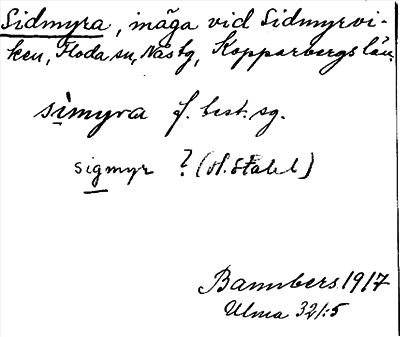 Sidmyra, mäga vid Sidmyrvi-
ken, Floda sn, Näs tg, Kopparbergs län.
sìmyra f. best. sg.
sigmyr ? (H. Stahl)
Bannbers 1917
Ulma 321:5